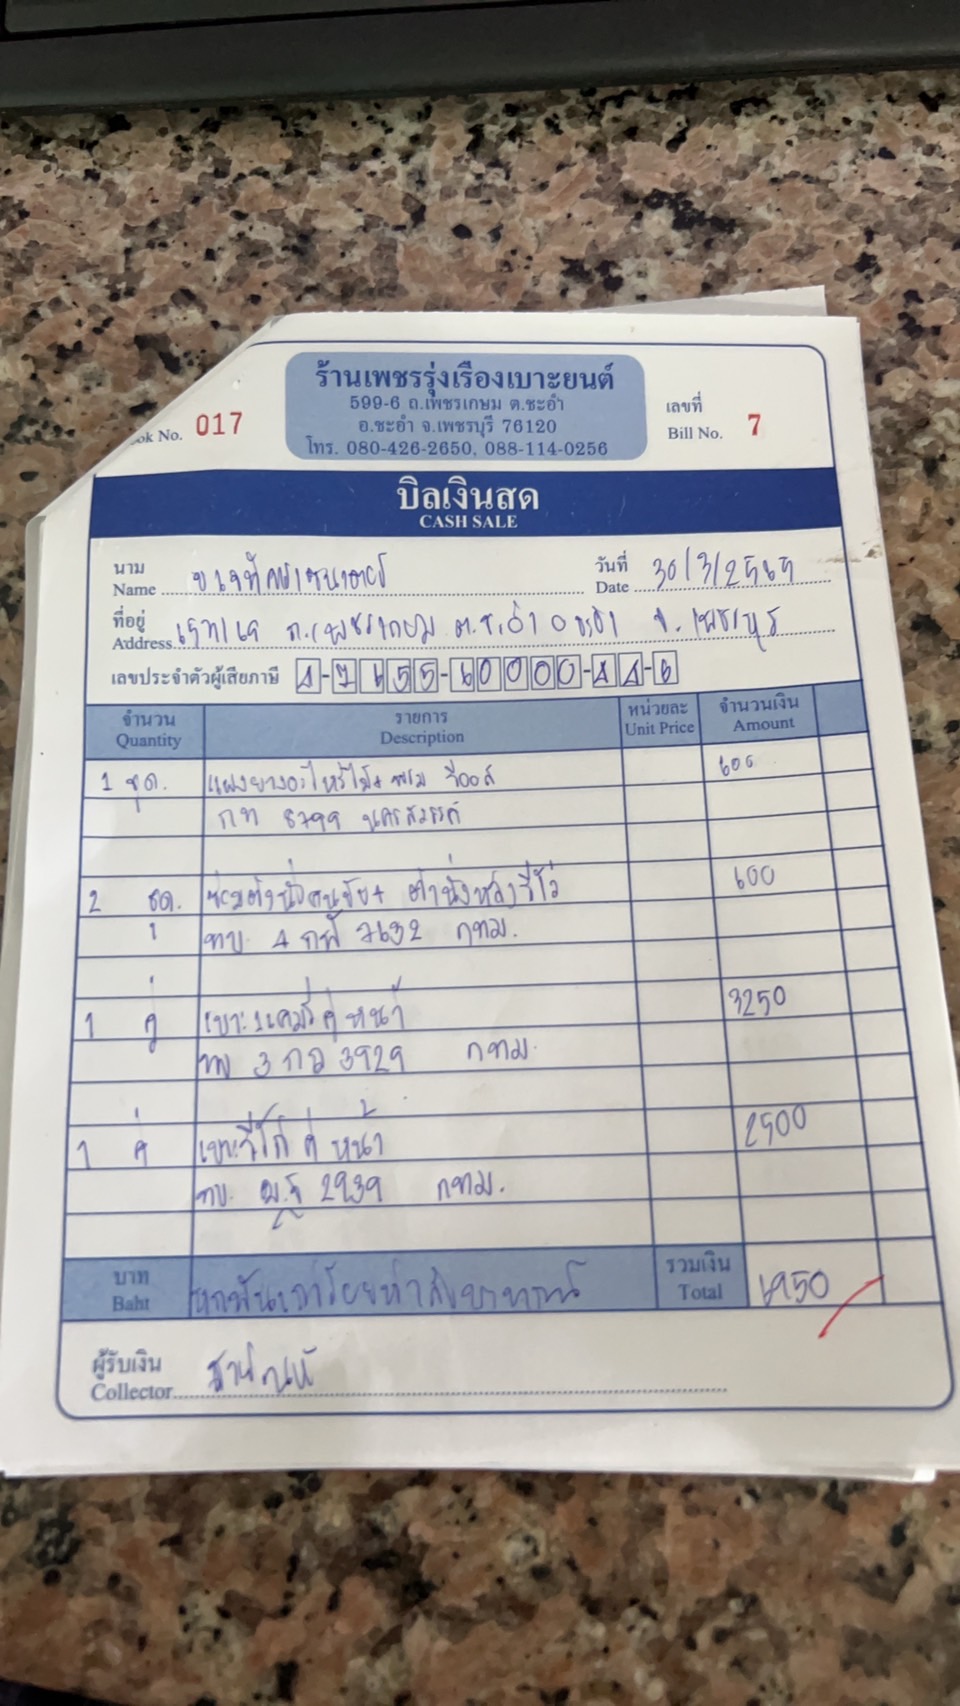 ร้านเพชรรุ่งเรืองเบาะยนต์
599-6 ถ.เพชรเกษม ต.ชะอำ
อ.ชะอำ จ.เพชรบุรี 76120
โทร. 080-426-2650, 088-114-0256
ok No. 017
เลขที่
Bill No. 7
บิลเงินสด
CASH SALE
นาม
Name
วันที่
Date 30/3/2565
ที่อยู่
Address ถ.เพชรเกษม ต.ชะอำ อ.ชะอำ จ.เพชรบุรี
เลขประจำตัวผู้เสียภาษี
จำนวน รายการ หน่วยละ จำนวนเงิน
Quantity Description Unit Price Amount
1 ชุด. 600
8799 นครสวรรค์
2 ชุด. 600
7632 กทม.
1 คู่ คู่หน้า 3250
3 กอ 3929 กทม.
1 คู่ เบาะวีโก้ คู่หน้า 2500
2939 กทม.
บาท
Baht หกพันเก้าร้อยห้าสิบบาทถ้วน
รวมเงิน
Total 6950
ผู้รับเงิน
Collector